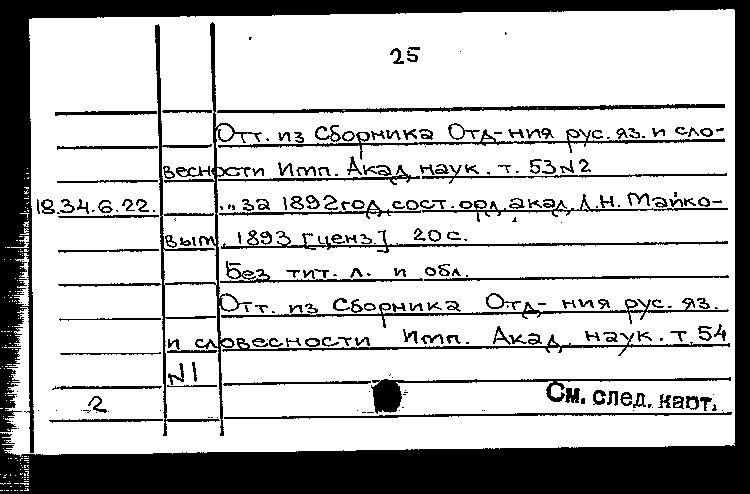 25
Отт. из Сборника Отд-ния рус. яз. и сло-
весности Имп. Акад. наук. т. 53 N2
18.34.6.22. ...за 1892 год, сост. орд. акад. Л.Н. Майко-
вым. 1893 [ценз.]. 20 с.
Без тит. л. и обл.
Отт. из Сборника Отд-ния рус. яз.
и словесности Имп. Акад. наук. т. 54
N1
2 См. след. карт.